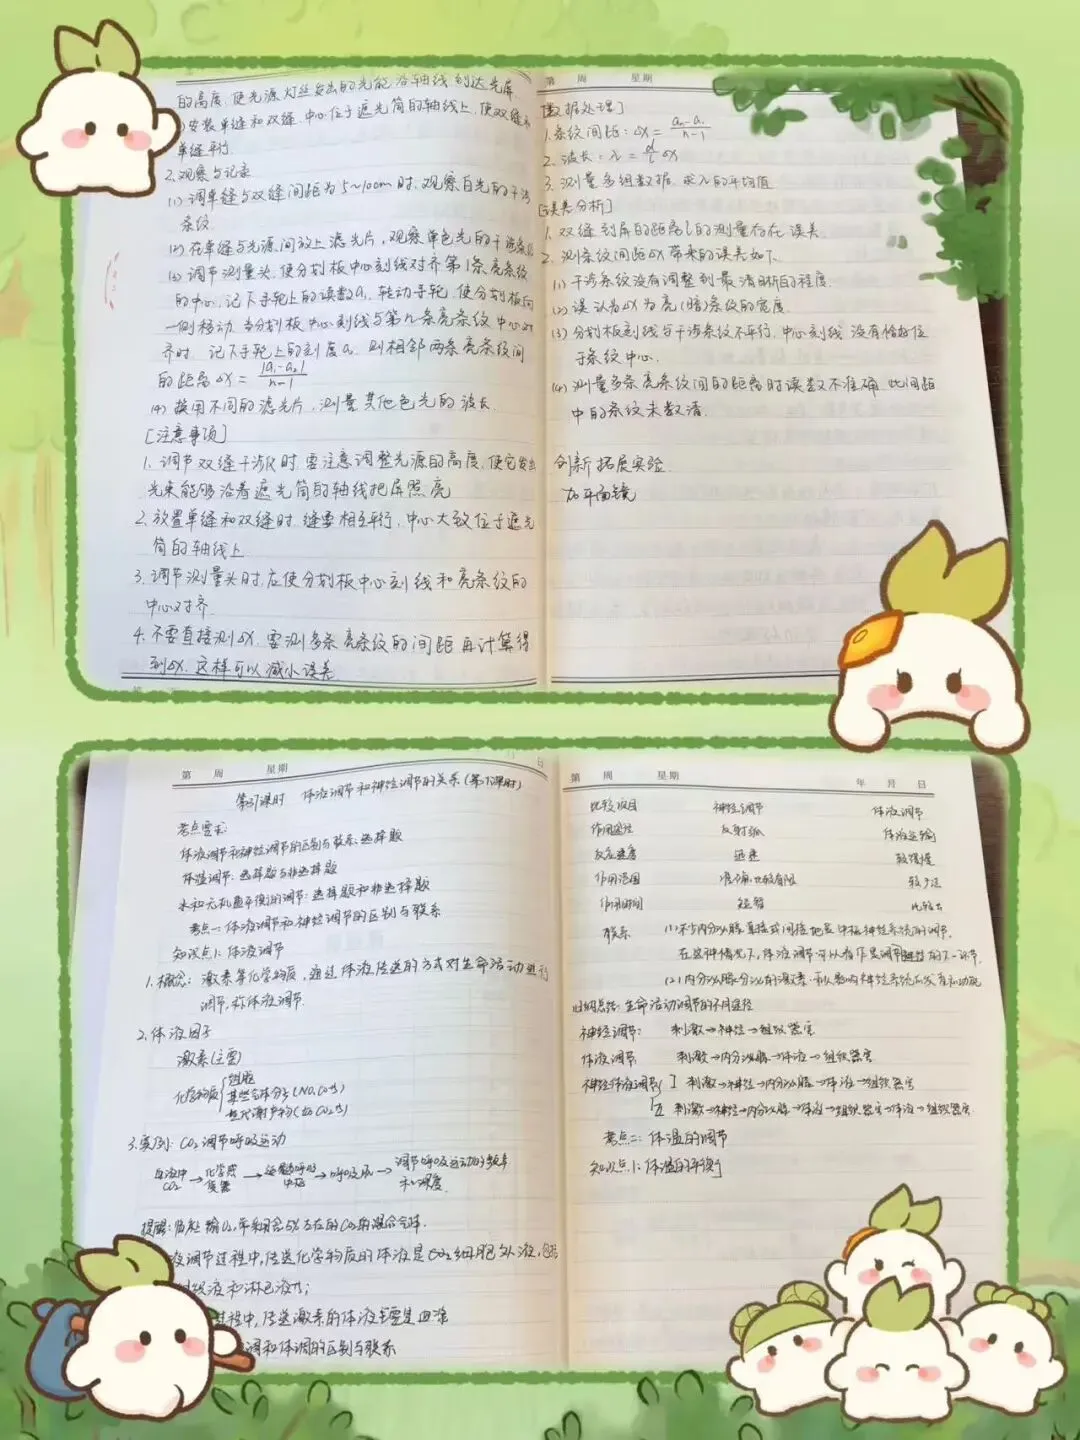 的高度,使光源灯丝发出的光能沿轴线到达光屏
安装单缝和双缝,中心位于遮光筒的轴线上,使双缝
单缝平行.
2.观察与记录
(1)调单缝与双缝间距为5~10cm时,观察白光的干涉
条纹
(2)在单缝与光源间放上滤光片,观察单色光的干涉条
(3)调节测量头,使分划板中心刻线对齐第1条亮条纹
的中心,记下手轮上的读数a₁,转动手轮,使分划板向
一侧移动,当分划板中心刻线与第n条亮条纹中心对
齐时,记下手轮上的刻度a₂,则相邻两条亮条纹间
的距离Δx=|a₁-a₂|/n-1
(4)换用不同的滤光片,测量其他色光的波长.
[注意事项]
1.调节双缝干涉仪时,要注意调整光源的高度,使它发出
光束能够沿着遮光筒的轴线把屏照亮
2.放置单缝和双缝时,缝要相互平行,中心大致位于遮光
筒的轴线上
3.调节测量头时,应使分划板中心刻线和亮条纹的
中心对齐.
4.不要直接测Δx,要测多条亮条纹的间距再计算得
到Δx,这样可以减小误差
第 周 星期
[数据处理]
1.条纹间距:Δx=aₙ-a₁/n-1
2.波长:λ=d/l Δx
3.测量多组数据,求λ的平均值
[误差分析]
1.双缝到屏的距离l的测量存在误差
2.测条纹间距Δx带来的误差如下
(1)干涉条纹没有调整到最清晰的程度
(2)误认为Δx为亮(暗)条纹的宽度
(3)分划板刻线与干涉条纹不平行,中心刻线没有恰好位
于条纹中心.
(4)测量多条亮条纹间的距离时读数不准确,此间距
中的条纹未数清.
创新拓展实验
加平面镜
第 周 星期
日
第37课时 体液调节和神经调节的关系(第1课时)
考点要求:
体液调节和神经调节的区别与联系:选择题
体温调节:选择题与非选择题
水和无机盐平衡的调节:选择题和非选择题
考点一:体液调节和神经调节的区别与联系
知识点1:体液调节
1.概念:激素等化学物质,通过体液传送的方式对生命活动进行
调节,称体液调节.
2.体液因子
激素(主要)
化学物质
组胺
某些气体分子(NO,CO等)
些代谢产物(如CO₂等)
3.实例:CO₂调节呼吸运动
血液中CO₂→化学感受器→呼吸中枢→呼吸肌→调节呼吸运动的频率和深度
提醒:临床输O₂,采用含5%左右的CO₂的混合气体.
液调节过程中,传送化学物质的体液是细胞外液,包括
组织液和淋巴液等;
过程中,传送激素的体液主要是血液
调和体调的区别与联系
第 周 星期 年 月 日
比较项目 神经调节 体液调节
作用途径 反射弧 体液运输
反应速度 迅速 较缓慢
作用范围 准确、比较有限 较广泛
作用时间 短暂 比较长
联系 (1)不少内分泌腺直接或间接地受中枢神经系统的调节,
在这种情况下,体液调节可以看作是调节的一环节
(2)内分泌腺分泌的激素可以影响神经系统的发育和功能
归纳总结:生命活动调节的不同途径
神经调节: 刺激→神经→组织器官
体液调节 刺激→内分泌腺→体液→组织器官
神经体液调节 Ⅰ 刺激→神经→内分泌腺→体液→组织器官
Ⅱ 刺激→神经→内分泌腺→体液→组织器官→体液→组织器官
考点二:体温的调节
知识点1:体温的平衡